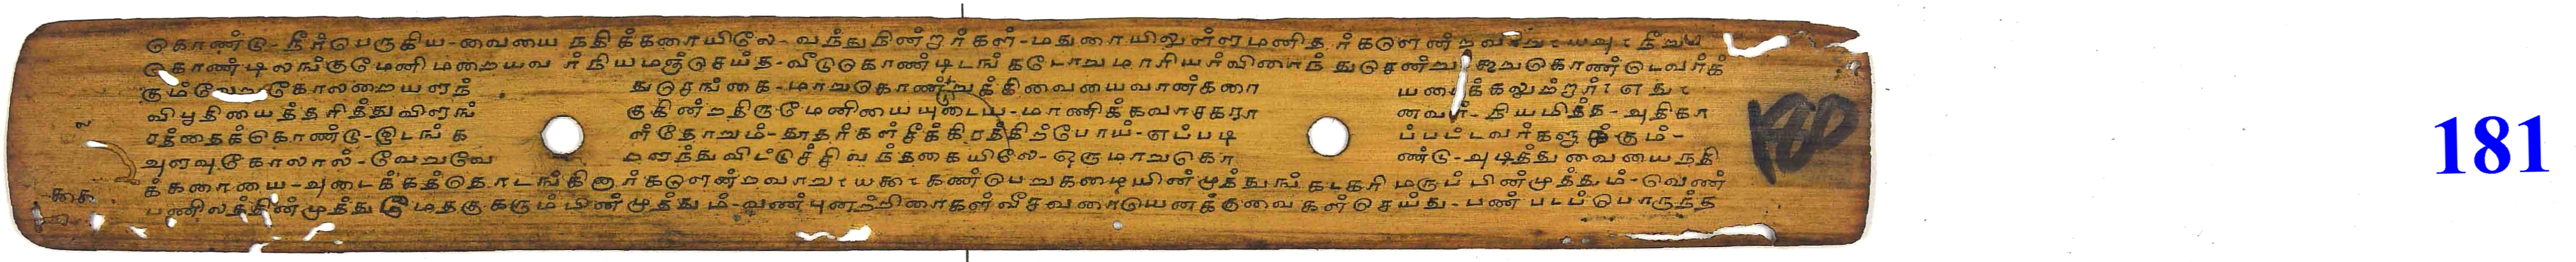 கொண்டு-நீர்பெருகிய-வையை நதிக்கரையிலே-வந்துநின்றார்கள்-மதுரையிலுள்ளமனிதர்களென்றவாறு
கொண்டிலங்குமேனிமறையவர் நியமஞ்செய்த-வீடுகொண்டிடங்கடோறுமாரியர்விரைந்துசென்று கொண்டெவர்க்
கும் கோலறையளந் துசெங்கை-மாறுகொண்டு வையைவான்கரை யடைக்கலுற்றார்
விபூதியைத்தரித்துவிளங் குகின்றதிருமேனியையுடைய-மாணிக்கவாசகரா னவர்-நியமித்த-அதிகா
ரத்தைக்கொண்டு-இடங்க ள்தோறும்-தூதர்கள்சீக்கிரத்திற்போய்-எப்படி ப்பட்டவர்களுக்கும்-
அளவுகோலால்-வேறுவே றளந்துவிட்டுச்சிவந்தகையிலே-ஒருமாறுகொ ண்டு-அடித்து வையைநதி
க்கரையை-அடைக்கத்தொடங்கினார்களென்றவாறு கண்பெறுகழையின்முத்துங் கடகரிமருப்பின்முத்தும்-வெண்
பணிலத்தின்முத்து கரும்பின்முத்தும்-வண்புனற்றிரைகள்வீசவரையெனக்குவைகள்செய்து-பண் பட்பொருந்த
180
181